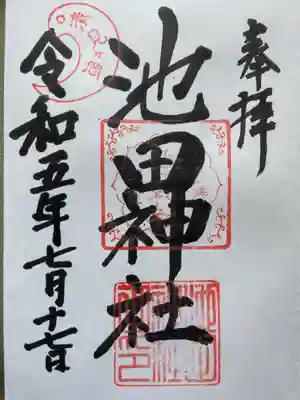 奉拝
池田神社
令和五年七月十七日